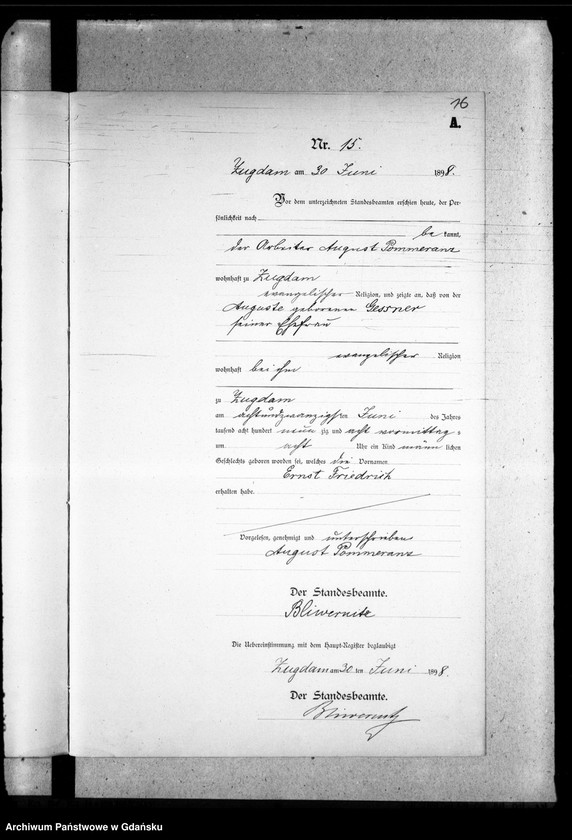 16
A.
Nr. 15.
Zugdam am 30 Juni 1898.
Vor dem unterzeichneten Standesbeamten erschien heute, der Per-
sönlichkeit nach
be kannt,
der Arbeiter August Pommeranz
wohnhaft zu Zugdam
evangelischer Religion, und zeigte an, daß von der
Auguste geborenen Gessner
seiner Ehefrau
evangelischer Religion
wohnhaft bei ihm
zu Zugdam
am achtundzwanzigsten Juni des Jahres
tausend acht hundert neun zig und acht vormittag s
um acht Uhr ein Kind männ lichen
Geschlechts geboren worden sei, welches die Vornamen
Ernst Friedrich
erhalten habe.
Vorgelesen, genehmigt und unterschrieben
August Pommeranz
Der Standesbeamte.
Bliwernitz
Die Uebereinstimmung mit dem Haupt-Register beglaubigt
Zugdam am 30 ten Juni 1898.
Der Standesbeamte.
Bliwernitz
Archiwum Państwowe w Gdańsku